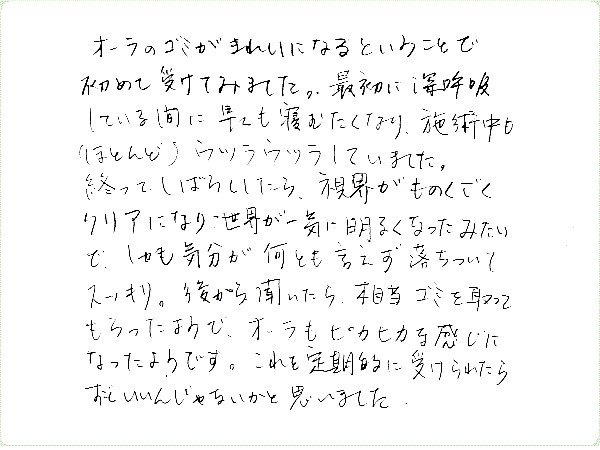 オーラのゴミがきれいになるということで
初めて受けてみました。最初に深呼吸
している間に早くも寝むたくなり、施術中も
(ほとんど)ウツラウツラしていました。
終ってしばらくしたら、視界がものくごく
クリアになり世界が一気に明るくなったみたい
で、しかも気分が何とも言えず落ちついて
スッキリ。後から聞いたら、相当ゴミを取って
もらったようで、オーラもピカピカな感じに
なったようです。これを定期的に受けられたら
すごいいんじゃないかと思いました.